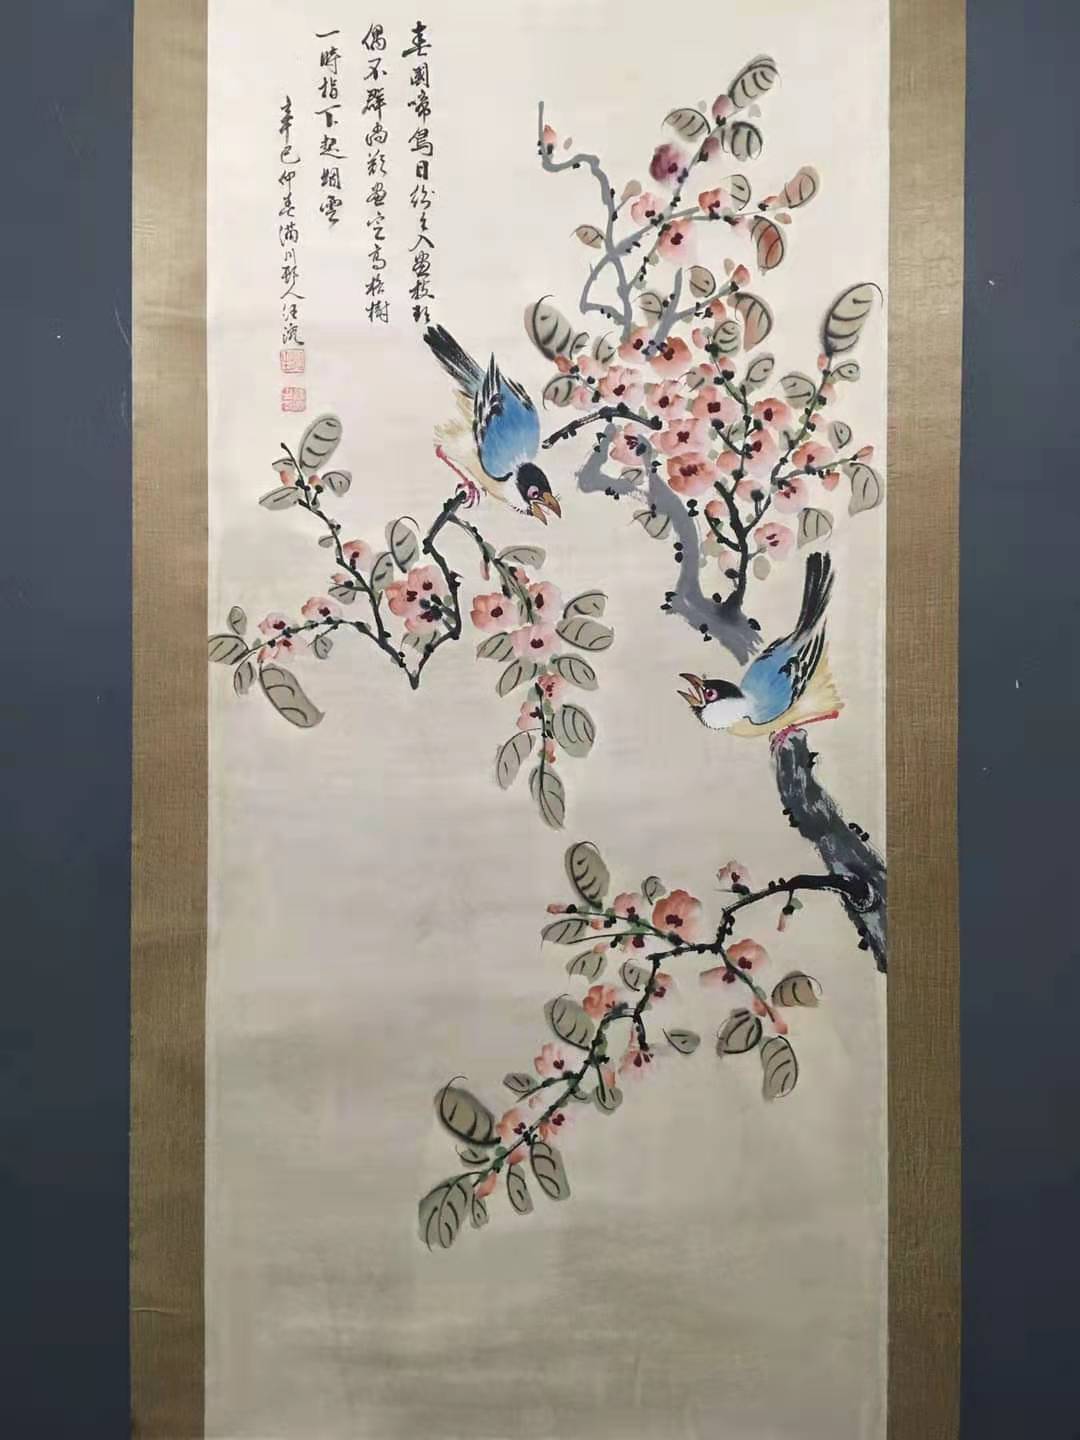 春園啼鳥日紛々入畫枝頭
偶不群尚欲畫空高樹
一時指下起烟雲
辛巳仲春滿川邨人汪溶